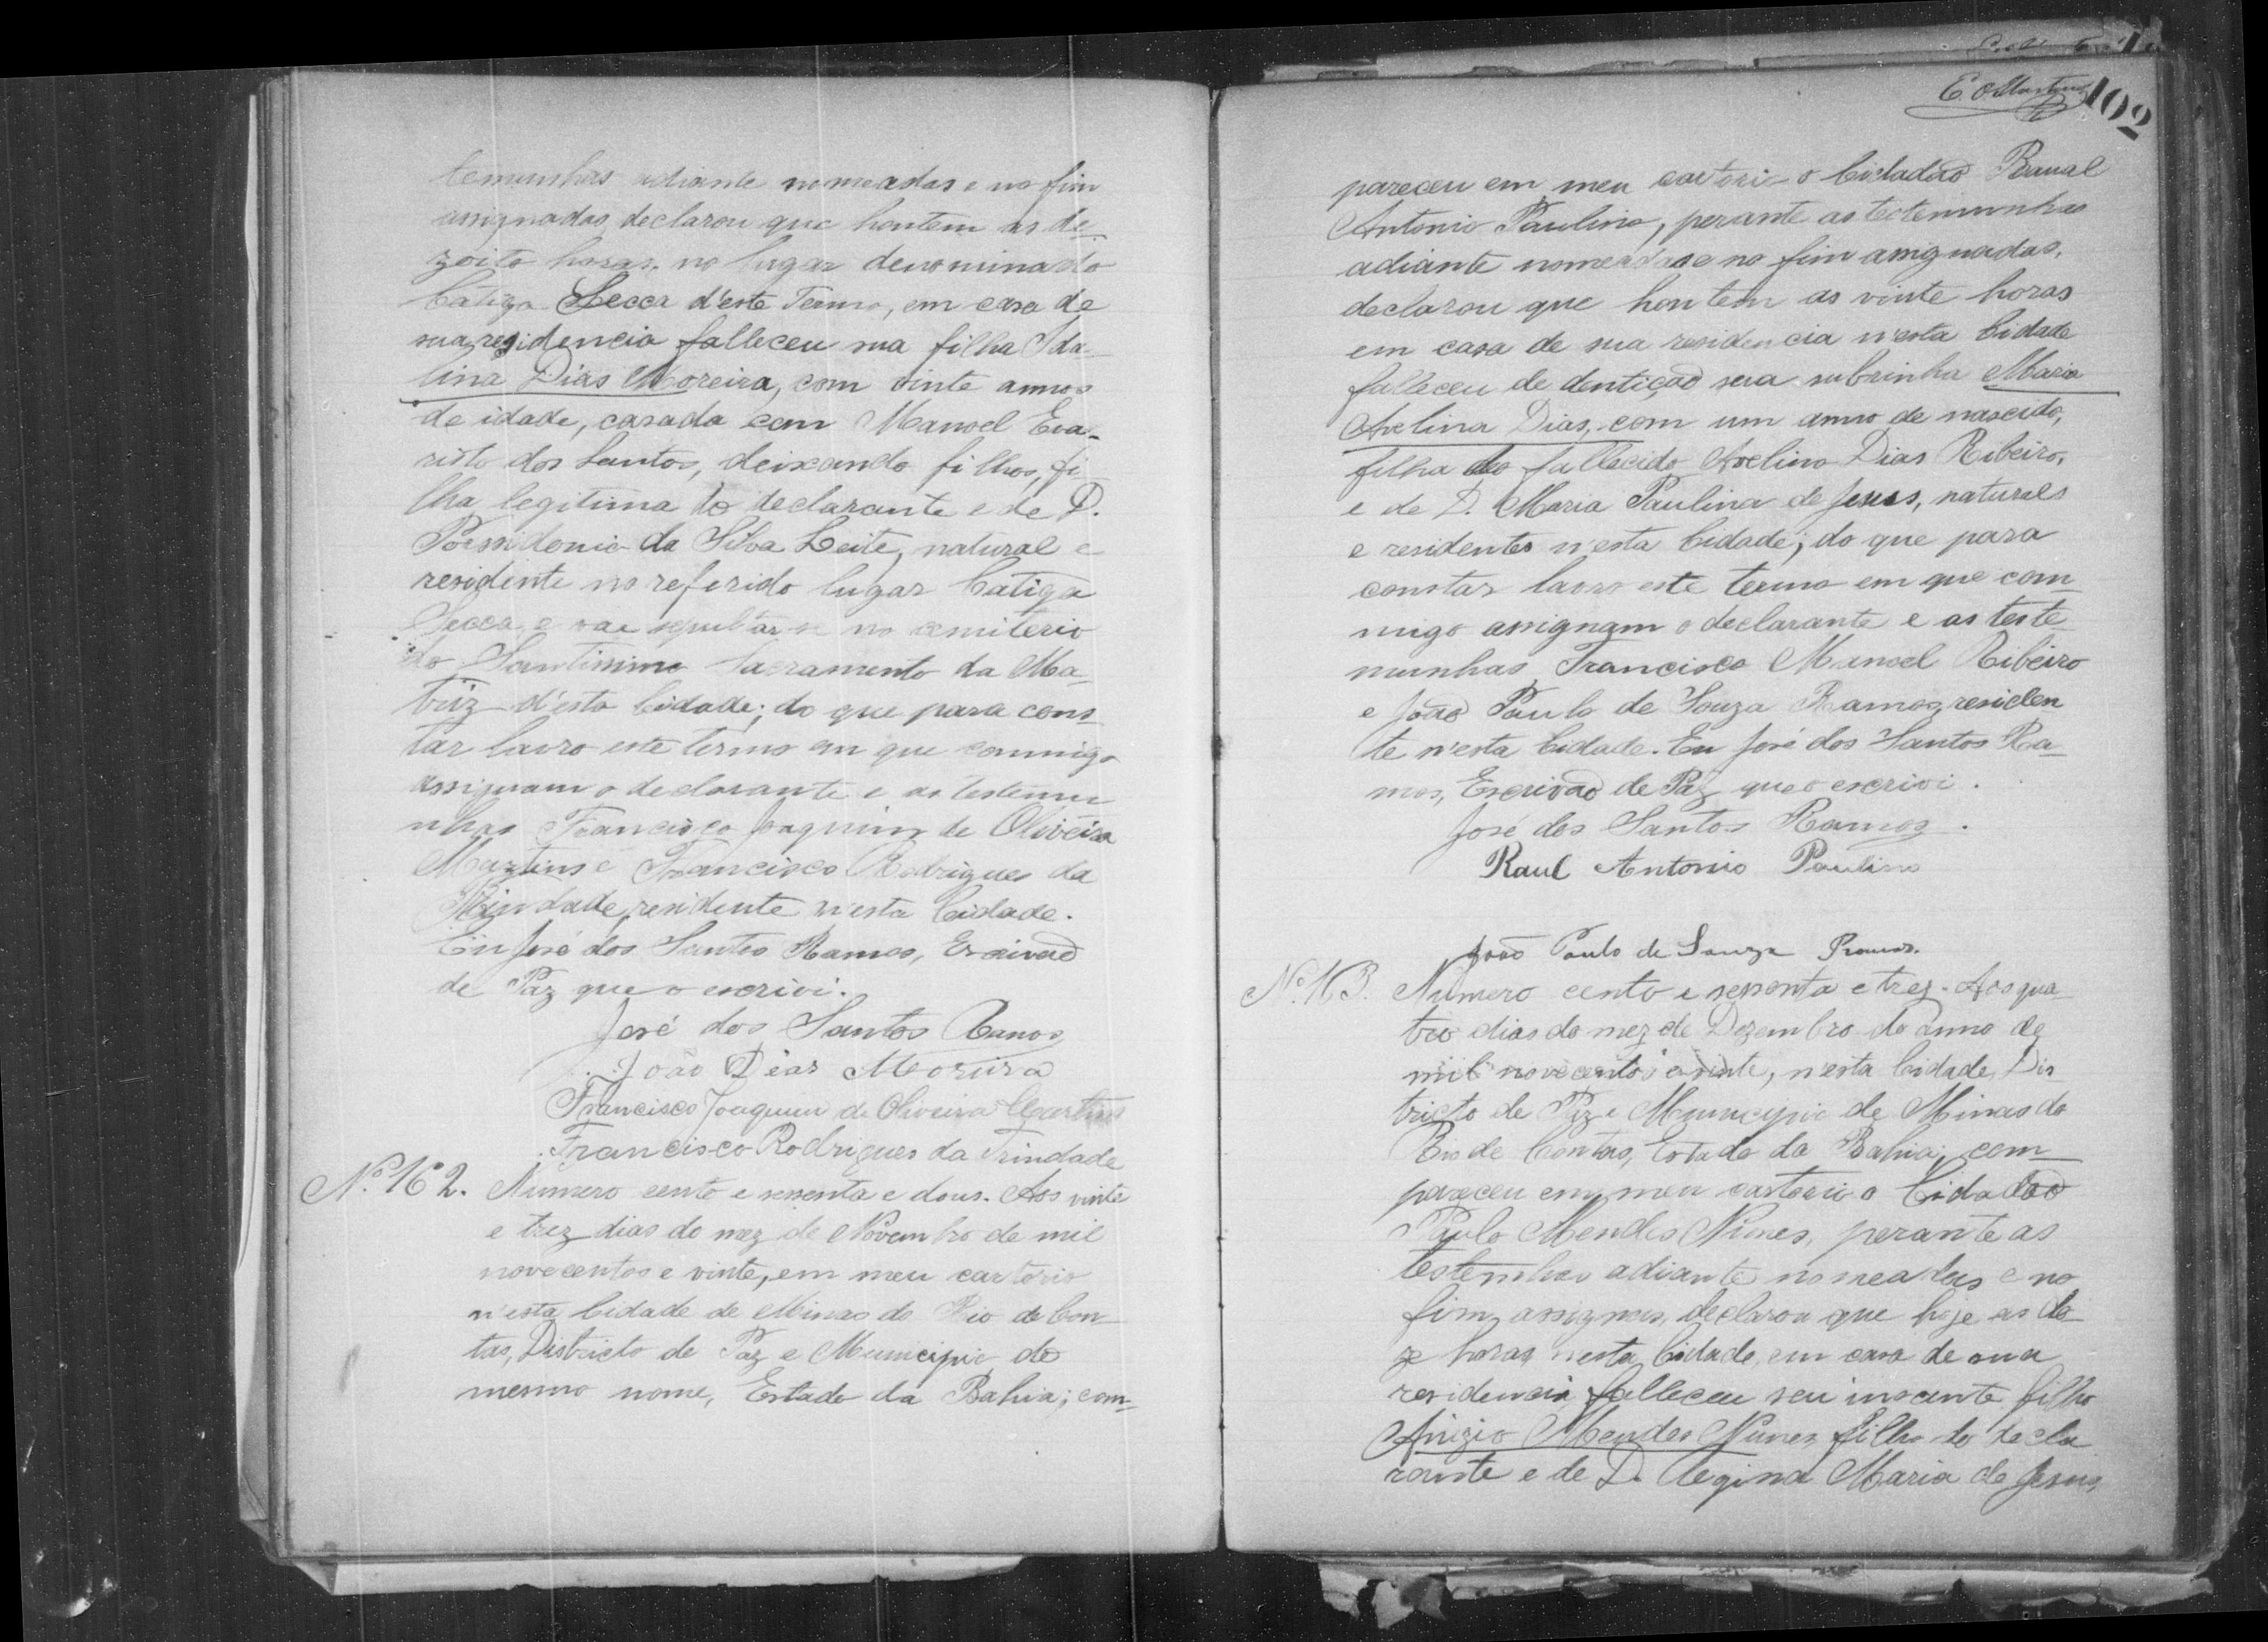 temunhas adiante nomeadas e no fim
assignadas, declarou que hontem as de-
zoito horas, no lugar denominado
Catiga Secca d'este Termo, em casa de
sua residencia falleceu sua filha Ida-
lina Dias Moreira, com vinte annos
de idade, casada com Manoel Eva-
risto dos Santos, deixando filhos, fi-
lha legitima do declarante e de D.
Possidonia da Silva Leite, natural e
residente no referido lugar Catiga
Secca, e vae sepultar-se no cemiterio
do Santissimo Sacramento da Ma-
triz d'esta Cidade; do que para cons-
tar lavro este termo em que commigo
assignam o declarante e as testemu
nhas Francisco Joaquim de Oliveira
Martins e Francisco Rodrigues da
Trindade, residente n'esta Cidade.
Eu José dos Santos Ramos, Escrivão
de Paz que o escrivi.
José dos Santos Ramos
João Dias Moreira
Francisco Joaquim de Oliveira Martins
Francisco Rodrigues da Trindade
Nº 162. Numero cento e sessenta e dous. Aos vinte
e trez dias do mez de Novembro de mil
novecentos e vinte, em meu cartorio
n'esta Cidade de Minas do Rio de Con-
tas, Districto de Paz e Municipio do
mesmo nome, Estado da Bahia; com-
102
pareceu em meu cartorio o Cidadão
Antonio Paulino, perante as testemunhas
adiante nomeadas e no fim assignadas,
declarou que hontem as vinte horas
em casa de sua residencia n'esta Cidade
falleceu de dentição sua subrinha Maria
Avelina Dias, com um anno de nascido,
filha do fallecido Avelino Dias Ribeiro,
e de D. Maria Paulina de Jesus, naturaes
e residentes n'esta Cidade; do que para
constar lavro este termo em que com-
migo assignam o declarante e as teste
munhas Francisco Manoel Ribeiro
e João Paulo de Souza Ramos, residen
te n'esta Cidade. Eu José dos Santos Ra-
mos, Escrivão de Paz que o escrivi.
José dos Santos Ramos.
Raul Antonio Paulino
João Paulo de Souza Ramos.
Nº 163. Numero cento e sessenta e trez. Aos qua-
tro dias do mez de Dezembro do anno de
mil novecentos e vinte, n'esta Cidade, Dis
tricto de Paz e Municipio de Minas do
Rio de Contas, Estado da Bahia, com-
pareceu em meu cartorio o Cidadão
Paulo Mendes Nunes, perante as
testemhas adiante nomeadas e no
fim declarou que hoje as do-
ze horas n'esta Cidade, em casa de sua
residencia falleceu seu inocente filho
Anizio Mendes Nunes, filho do decla
rante e de D. Regina Maria de Jesus,